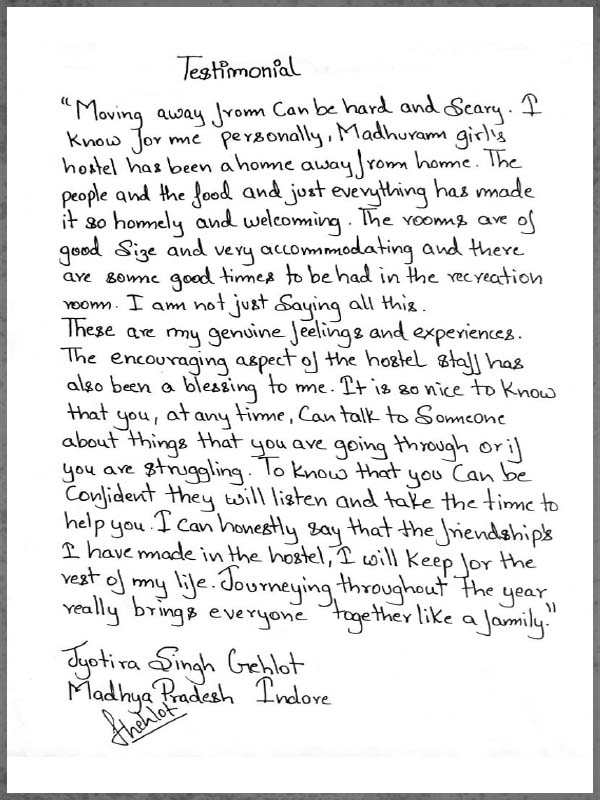 Testimonial
"Moving away from Can be hard and Scary. I
know for me personally, Madhuram girl's
hostel has been a home away from home. The
people and the food and just everything has made
it so homely and welcoming. The rooms are of
good Size and very accommodating and there
are some good times to be had in the recreation
room. I am not just Saying all this.
These are my genuine feelings and experiences.
The encouraging aspect of the hostel staff has
also been a blessing to me. It is so nice to know
that you, at any time, Can talk to Someone
about things that you are going through or if
you are struggling. To know that you Can be
Confident they will listen and take the time to
help you. I can honestly say that the friendship's
I have made in the hostel, I will keep for the
rest of my life. Journeying throughout the year
really brings everyone together like a family."
Jyotira Singh Gehlot
Madhya Pradesh Indore